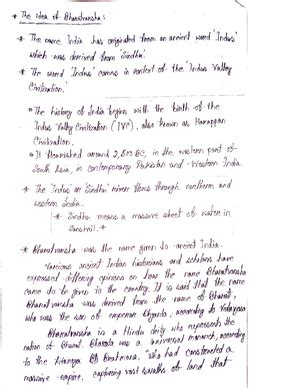 * The Idea of Bharatvarsha:
* The name India has originated from an ancient word 'Indus'
which was derived from 'Sindhu'.
* The word 'Indus' comes in context of the 'Indus Valley
Civilization.'
• The history of India begins with the birth of the
Indus Valley Civilization (IVC), also known as Harappan
Civilization.
• It flourished around 2,500 BC, in the western part of
South Asia, in contemporary Pakistan and Western India.
* The 'Indus' or 'Sindhu' river flows through northern and
western India.
* Sindhu means a massive sheet of water in
Sanskrit. *
* Bharatvarsha was the name given to ancient India.
Various ancient Indian historians and scholars have
expressed differing opinions on how the name Bharatvarsha
came to be given to the country. It is said that the name
Bharatvarsha was derived from the name of Bharat,
who was the son of according to
Bharatvarsha is a Hindu deity who represents the
nation of Bharat. Bharata was a universal monarch, according
to the Aitareya Brahmana. "Who had constructed a
massive empire, capturing vast swaths of land that